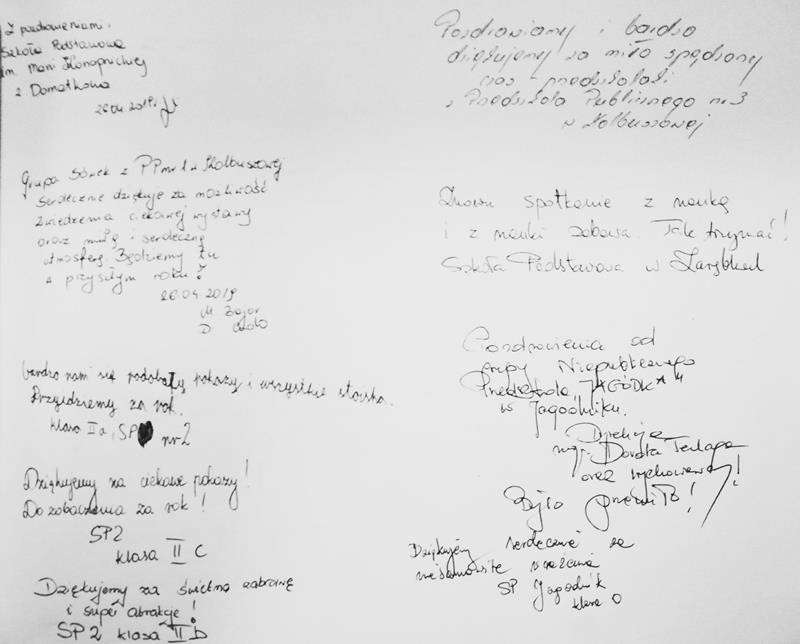 Z pozdrowieniami
Szkoła Podstawowa
im. Marii Konopnickiej
z Domatkowa
26.04.2019r.
Grupa Sówek z PPnr1 w Kolbuszowej
serdecznie dziękuje za możliwość
zwiedzenia ciekawej wystawy
oraz miłą i serdeczną
atmosferę. Będziemy tu
w przyszłym roku!
26.04.2019
M. Zajor
D.
bardzo nam się podobały pokazy i wszystkie stoiska.
Przyjdziemy za rok.
klasa IIa, SP nr 2
Dziękujemy za ciekawe pokazy!
Do zobaczenia za rok!
SP2
klasa II C
Dziękujemy za świetną zabawę
i super atrakcje!
SP2 klasa II b
Pozdrawiamy i bardzo
dziękujemy za miło spędzony
czas - przedszkolaki
z Przedszkola Publicznego nr 3
w Kolbuszowej
Znowu spotkanie z nauką
i z nauki zabawa. Tak trzymać!
Szkoła Podstawowa w
Pozdrowienia od
grupy Niepublicznego
Przedszkola "JAGÓDKA"
w Jagodniku.
Dyrekcja
mgr Dorota
oraz wychowawcy!
Było przemiło!
Dziękujemy serdecznie za
niesamowite wrażenia
SP Jagodnik
klasa 0